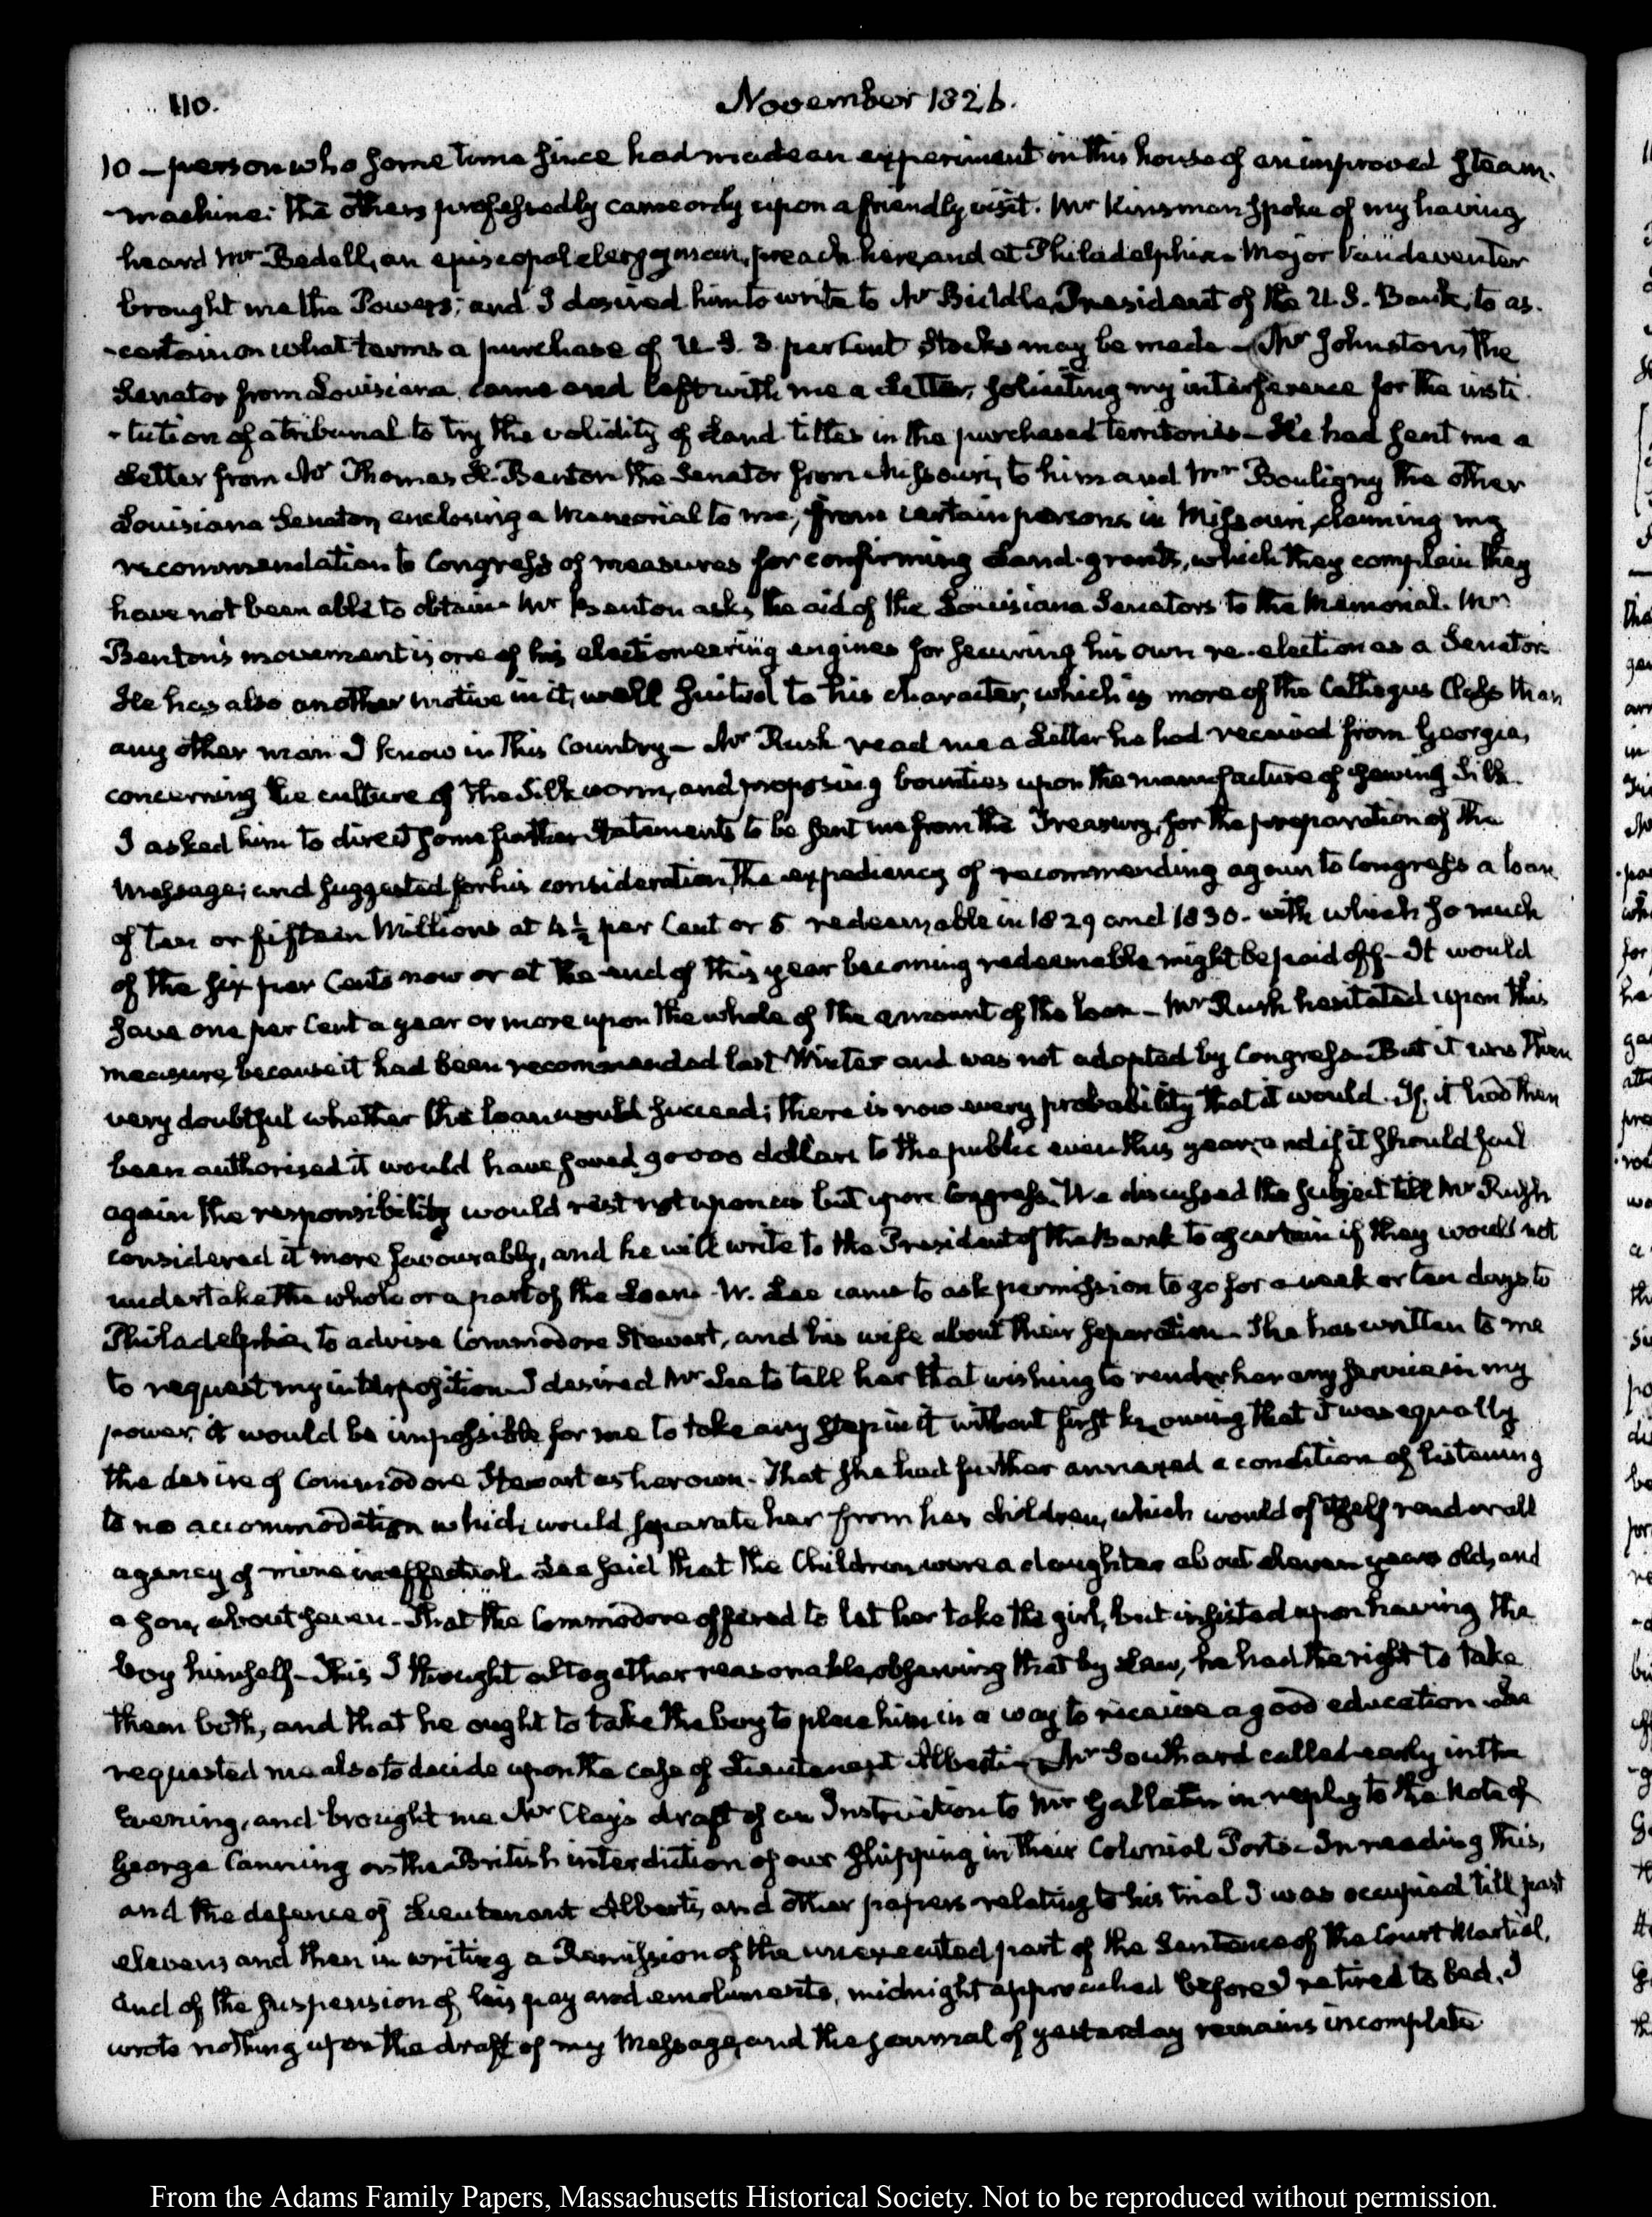 110.
November 1826.
10 — person who some time since had made an experiment in this house of an improved steam-
-machine: the others professedly came only upon a friendly visit. Mr Kinsman spoke of my having
heard Mr Bedell, an episcopal clergyman, preach here, and at Philadelphia. Major Vandeventer
brought me the Powers; and I desired him to write to Mr Biddle, President of the U.S. Bank, to as-
-certain on what terms a purchase of U.S. 3. per Cent Stocks may be made — Mr Johnston, the
Senator from Louisiana came and left with me a Letter, soliciting my interference for the insti-
-tution of a tribunal to try the validity of Land titles in the purchased territories — He had sent me a
Letter from Mr Thomas H. Benton the Senator from Missouri, to him and Mr Bouligny the other
Louisiana Senator, enclosing a Memorial to me, from certain persons in Missouri, claiming my
recommendation to Congress of measures for confirming Land-grants, which they complain they
have not been able to obtain. Mr Benton asks the aid of the Louisiana Senators to the Memorial. Mr
Benton's movement is one of his electioneering engines for securing his own re-election as a Senator.
He has also another motive in it, well suited to his character, which is more of the Cathegus Class than
any other man I know in this Country — Mr Rush read me a Letter he had received from Georgia,
concerning the culture of the Silk worm, and proposing bounties upon the manufacture of sewing Silk.
I asked him to direct some further Statements to be sent me from the Treasury, for the preparation of the
Message; and suggested for his consideration, the expediency of recommending again to Congress a loan
of ten or fifteen Millions at 4½ per Cent or 5 redeemable in 1829 and 1830. with which so much
of the six per Cents now or at the end of this year becoming redeemable might be paid off — It would
save one per Cent a year or more upon the whole of the amount of the loan — Mr Rush hesitated upon this
measure, because it had been recommended last Winter and was not adopted by Congress. But it was then
very doubtful whether the loan would succeed; there is now every probability that it would. If it had then
been authorised it would have saved 90000 dollars to the public even this year; and if it should fail
again the responsibility would rest not upon us but upon Congress. We discussed the subject till Mr Rush
considered it more favourably, and he will write to the President of the Bank to ascertain if they would not
undertake the whole or a part of the Loan. W. Lee came to ask permission to go for a week or ten days to
Philadelphia, to advise Commodore Stewart, and his wife about their separation. She has written to me
to request my interposition. I desired Mr Lee to tell her that wishing to render her any service in my
power, it would be impossible for me to take any step in it without first knowing that it was equally
the desire of Commodore Stewart as her own. That she had further annexed a condition of listening
to no accommodation which would separate her from her children, which would of itself render all
agency of mine ineffectual. Lee said that the Children were a daughter about eleven years old, and
a son, about seven. That the Commodore offered to let her take the girl, but insisted upon having the
boy himself — This I thought altogether reasonable, observing that by Law, he had the right to take
them both, and that he ought to take the boy to place him in a way to receive a good education. Lee
requested me also to decide upon the case of Lieutenant Alberti — Mr Southard called early in the
Evening, and brought me Mr Clay's draft of an Instruction to Mr Gallatin in reply to the Note of
George Canning on the British interdiction of our shipping in their Colonial Ports. In reading this,
and the defence of Lieutenant Alberti, and other papers relating to his trial I was occupied till past
eleven; and then in writing a Remission of the unexecuted part of the Sentence of the Court Martial,
and of the suspension of his pay and emoluments, midnight approached before I retired to bed. I
wrote nothing upon the draft of my Message, and the journal of yesterday remains incomplete
From the Adams Family Papers, Massachusetts Historical Society. Not to be reproduced without permission.